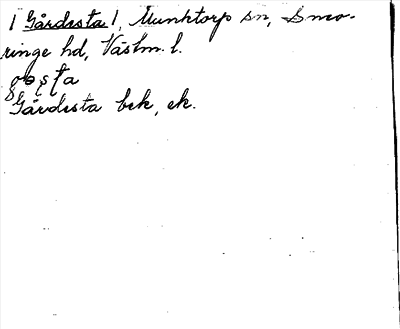 | Gårdsta |, Munktorp sn, Snev-
ringe hd, Västm. l.
Gårdsta bsk, ek.